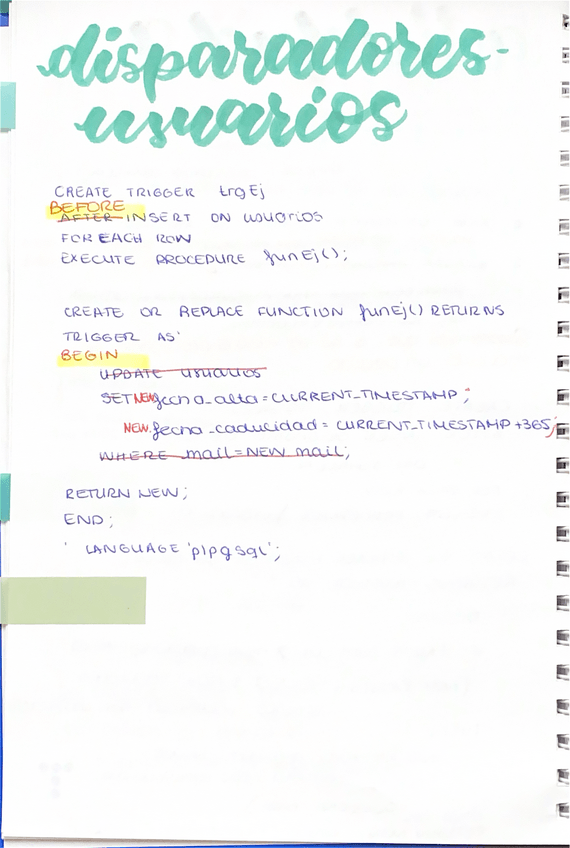 disparadores-
usuarios
CREATE TRIGGER trgEj
BEFORE
AFTER INSERT ON usuarios
FOR EACH ROW
EXECUTE PROCEDURE funEj();
CREATE OR REPLACE FUNCTION funEj() RETURNS
TRIGGER AS'
BEGIN
UPDATE usuarios
SET NEW.fecha_alta = CURRENT_TIMESTAMP;
NEW.fecha_caducidad = CURRENT_TIMESTAMP +365;
WHERE mail = NEW mail;
RETURN NEW;
END;
' LANGUAGE 'plpgsql';